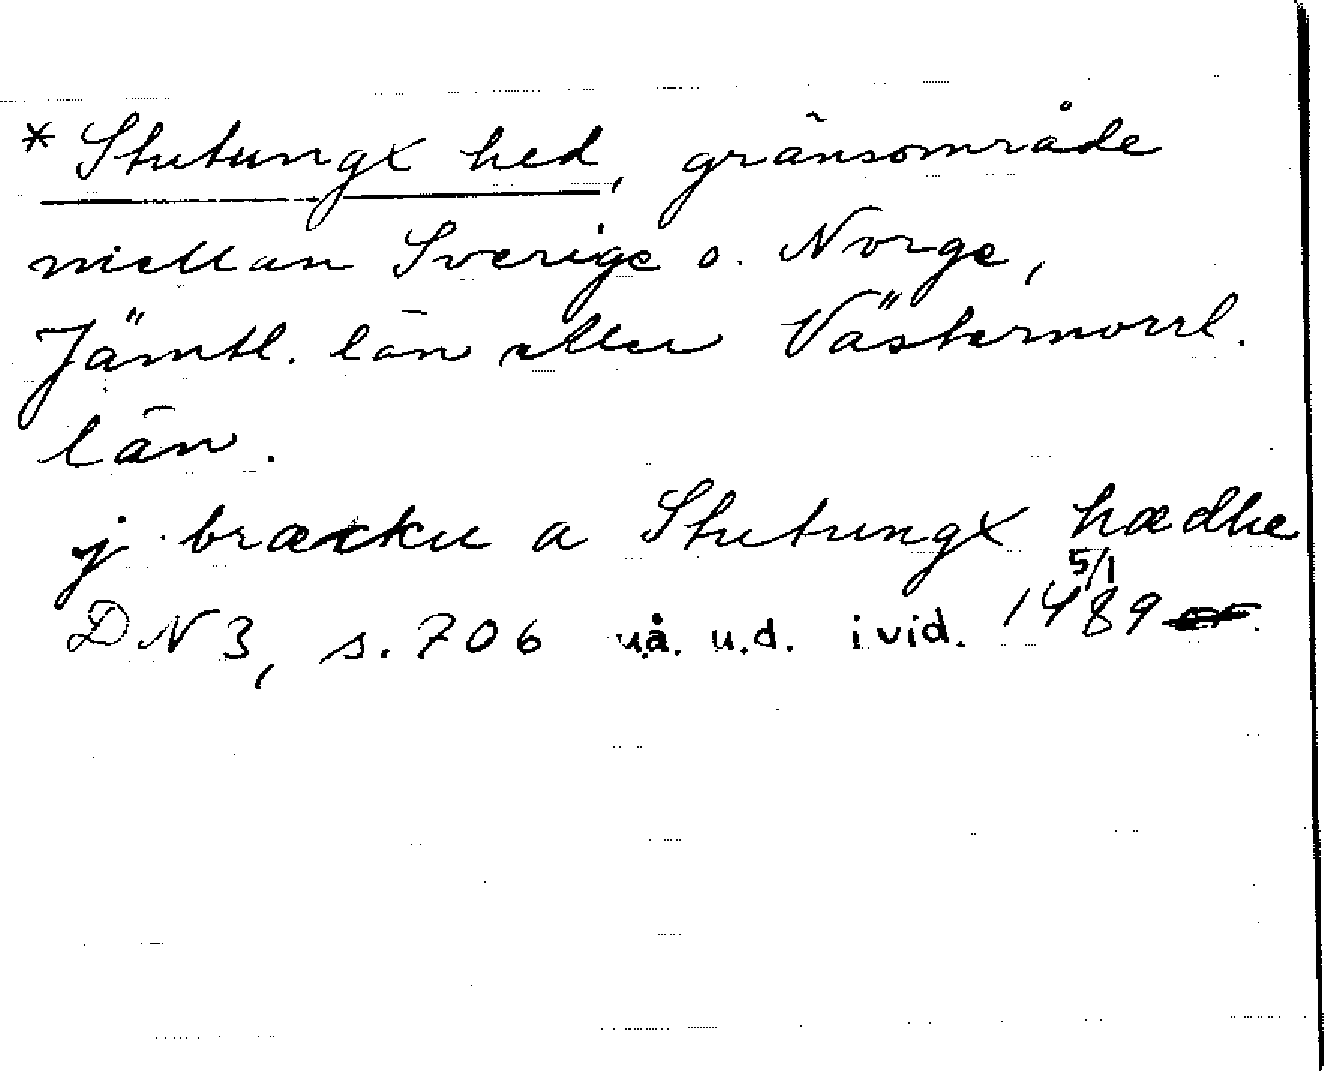 * Stutungx hed, gränsområde
mellan Sverige o. Norge,
Jämtl. län eller Västernorrl.
län.
j brækku a Stutungx hædhe
DN 3, s. 706 u.å. u.d. i vid. 5/1 1489